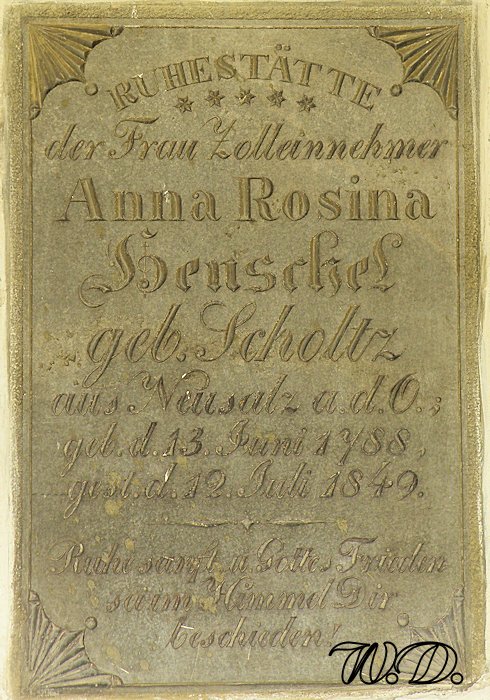 RUHESTÄTTE
der Frau Zolleinnehmer
Anna Rosina
Henschel
geb. Scholtz
aus Neusalz a. d. O.;
geb. d. 13. Juni 1788,
gest. d. 12. Juli 1849.
Ruhe sanft u Gottes Frieden
sei im Himmel Dir
beschieden!
W.D.